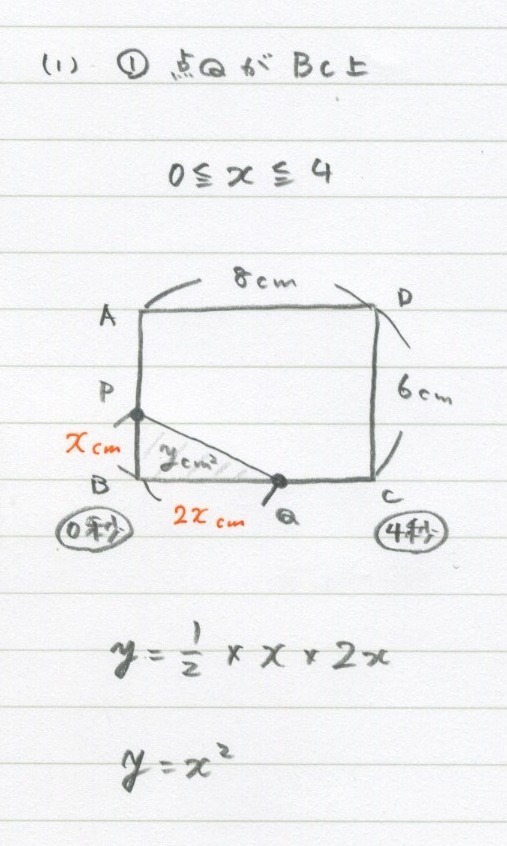 (1) ① 点Qが BC上
0 ≦ x ≦ 4
8cm
A
D
P
6cm
xcm
ycm²
B
C
2xcm
Q
0秒
4秒
y = 1/2 × x × 2x
y = x²